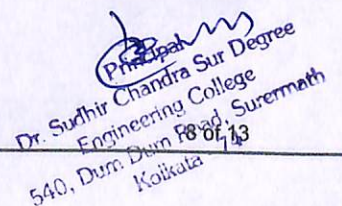 Principal
Dr. Sudhir Chandra Sur Degree
Engineering College
540, Dum Dum Road, Surermath
Kolkata - 74
8 of 13